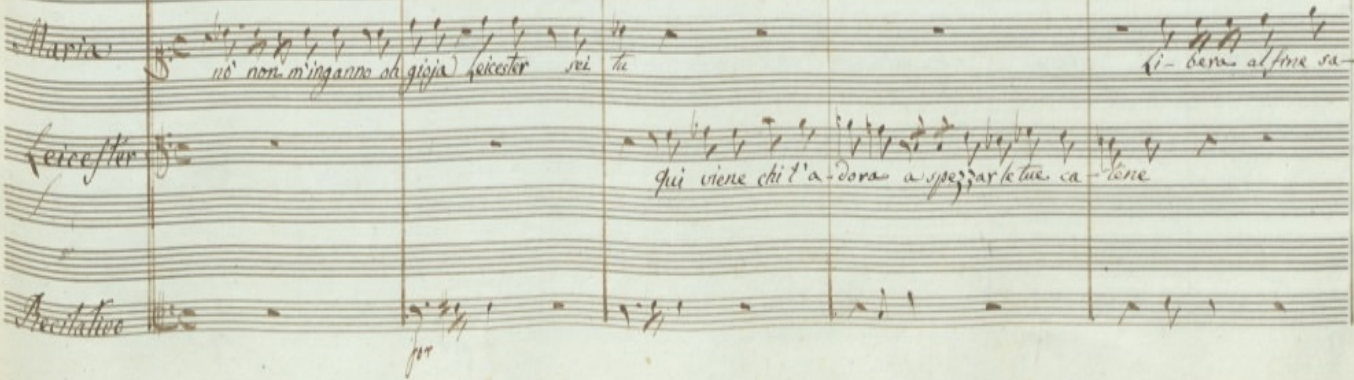 Maria
nò non m'inganno oh gioja Leicester sei tu
Li-bera al fine sa-
Leicester
qui viene chi t'a-dora a spezzar le tue ca-tene
Recitativo
for